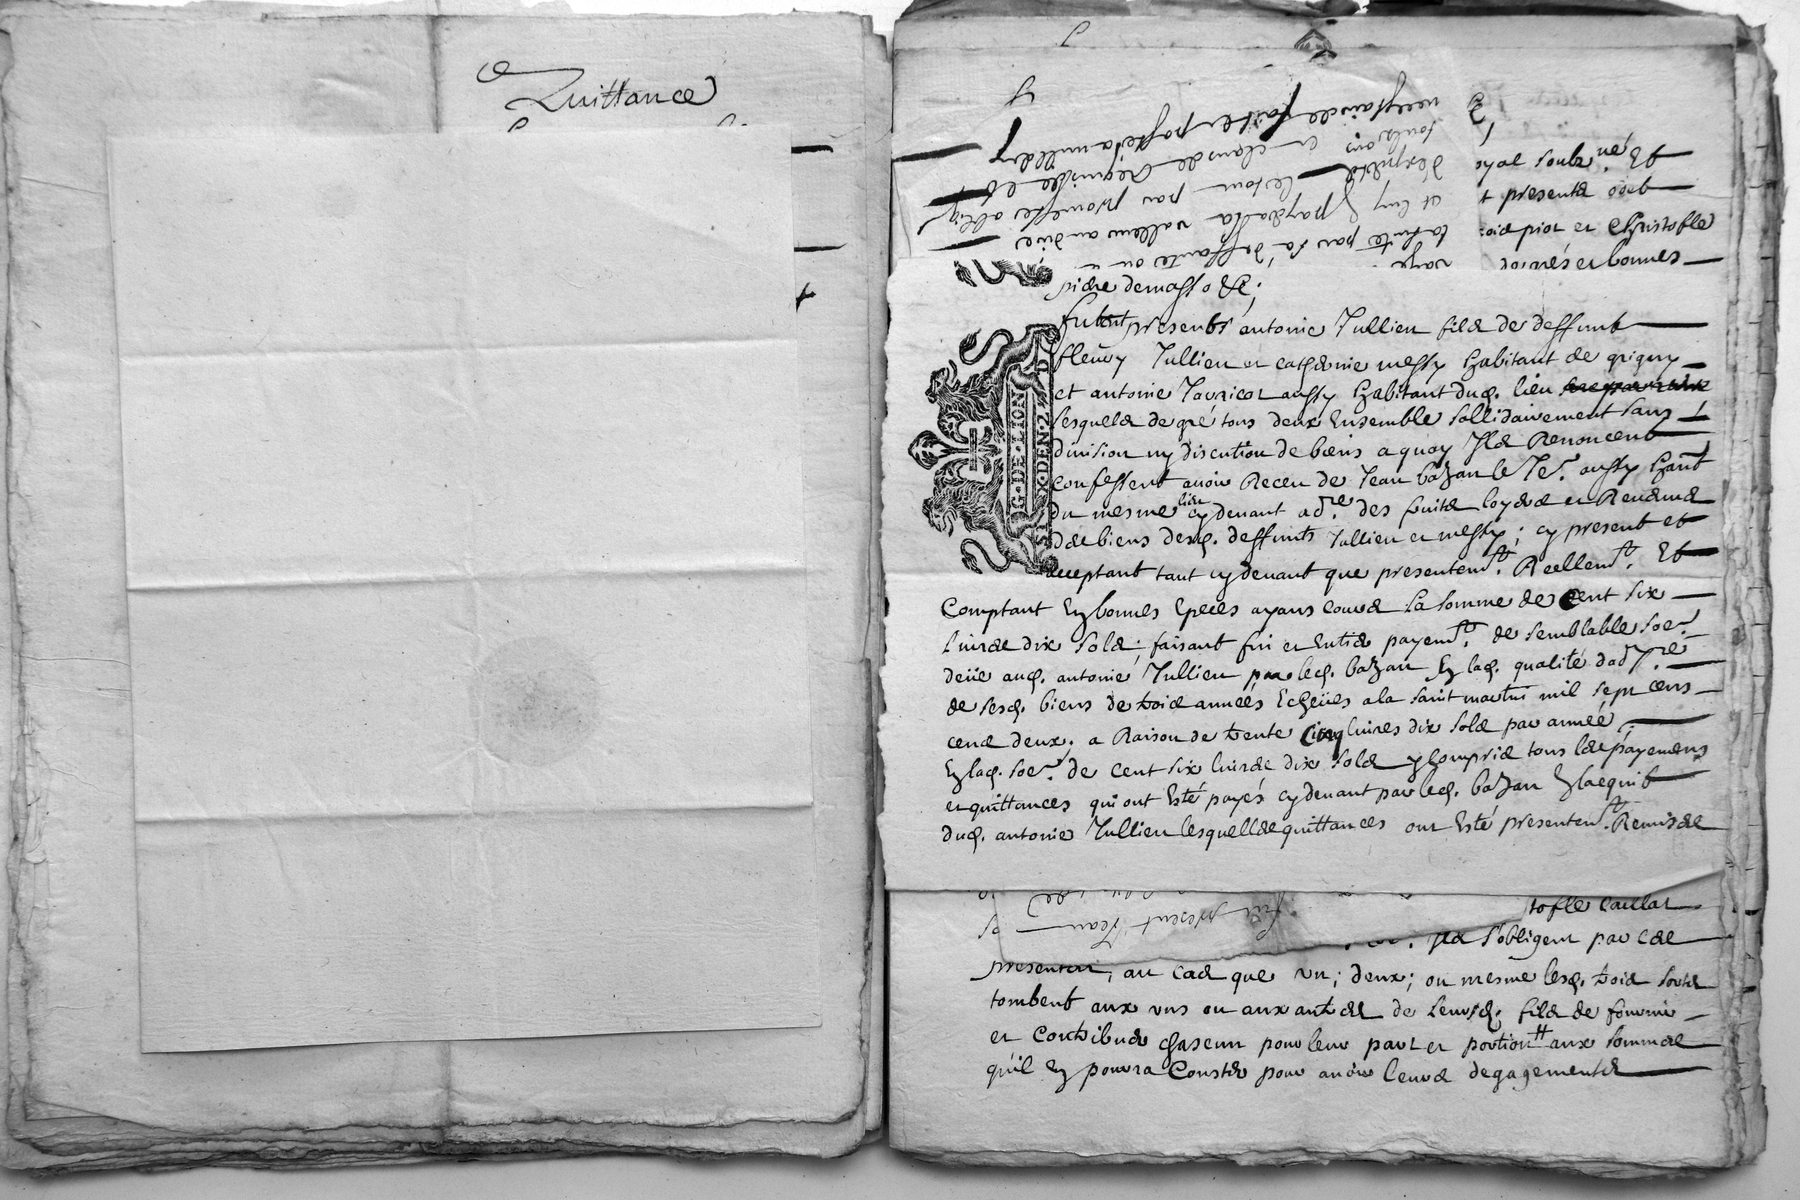 Quittance
necessaires fait et passé a millery
soubz ons et clauses Requises et
despends le tout par promesse oblig
et luy payera la valleur au dire
yal soubz.né Et
t presents
ois piot et Christofle
années et bonnes
piere demasso &c;
furent presents antoine Jullien fils de deffunt
fleury Jullien et catherine messy habitant de grigny
et antoine Javricot aussy habitant dud. lieu
lesquels de gré tous deux Ensemble sollidairement sans
division ny discution de biens a quoy Ils Renoncent
confessent avoir Receu de Jean bazan le Je.r aussy habit
du mesme lieu cy devant ad.re des fruits loyers et Revenus
des biens desd. deffunts Jullien et messy; cy present et
acceptant tant cy devant que presentem.t Reellem.t Et
Comptant En bonnes Epeces ayans cours la somme de Cent six
livres dix sols; faisant fin et Entier payem.t de semblable soe.
deüe aud. antoine Jullien par led. bazan En lad. qualité dad.re
de sesd. biens de trois années Echeües a la saint martin mil sept cens
cens deux; a Raison de trente Cinq livres dix sols par année;
En lad. soe. de cent six livres dix sols y Compris tous les payemens
et quittances qui ont Esté payés cy devant par led. bazan En lacquit
dud. antoine Jullien lesquelles quittances ont Esté presentem.t Remises
fut present Jean
tofle Caillat
Ils s'obligent par ces
presentes, au cas que un; deux; ou mesme lesd. trois sorts
tombent aux uns ou aux autres de leursd. fils de fournir
et Contribuer chascun pour leur part et portion aux sommes
qu'il En pourra Couster pour avoir leurs degagements
G. DE. LION
SIX. DEN. 2 D